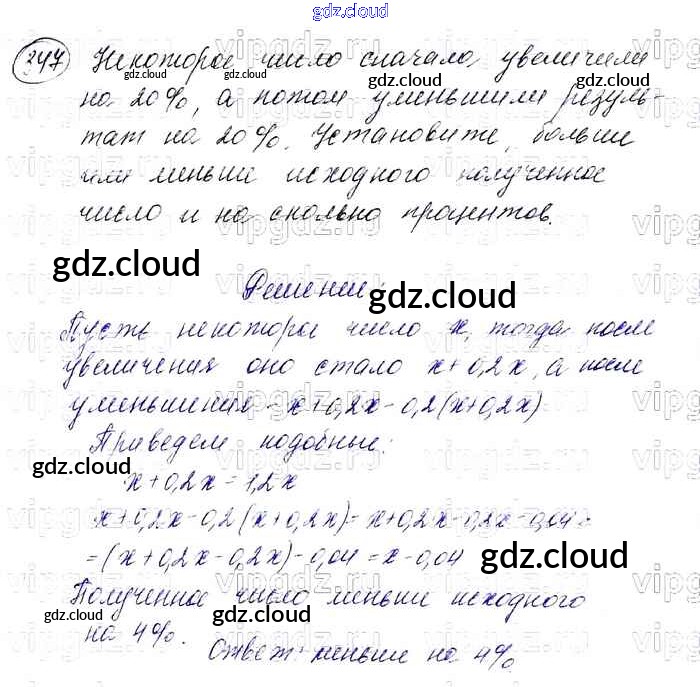 gdz.cloud
347 Некоторое число сначала увеличили
на 20%, а потом уменьшили резуль-
тат на 20%. Установите, больше
или меньше исходного полученное
число и на сколько процентов.
gdz.cloud
Решение:
gdz.cloud
Пусть некоторое число x, тогда после
увеличения оно стало x+0,2x, а после
уменьшения - x+0,2x-0,2(x+0,2x)
Приведем подобные:
gdz.cloud
x+0,2x=1,2x
x+0,2x-0,2(x+0,2x)=x+0,2x-0,2x-0,04=
=(x+0,2x-0,2x)-0,04=x-0,04
gdz.cloud
Полученное число меньше исходного
на 4%.
Ответ: меньше на 4%.